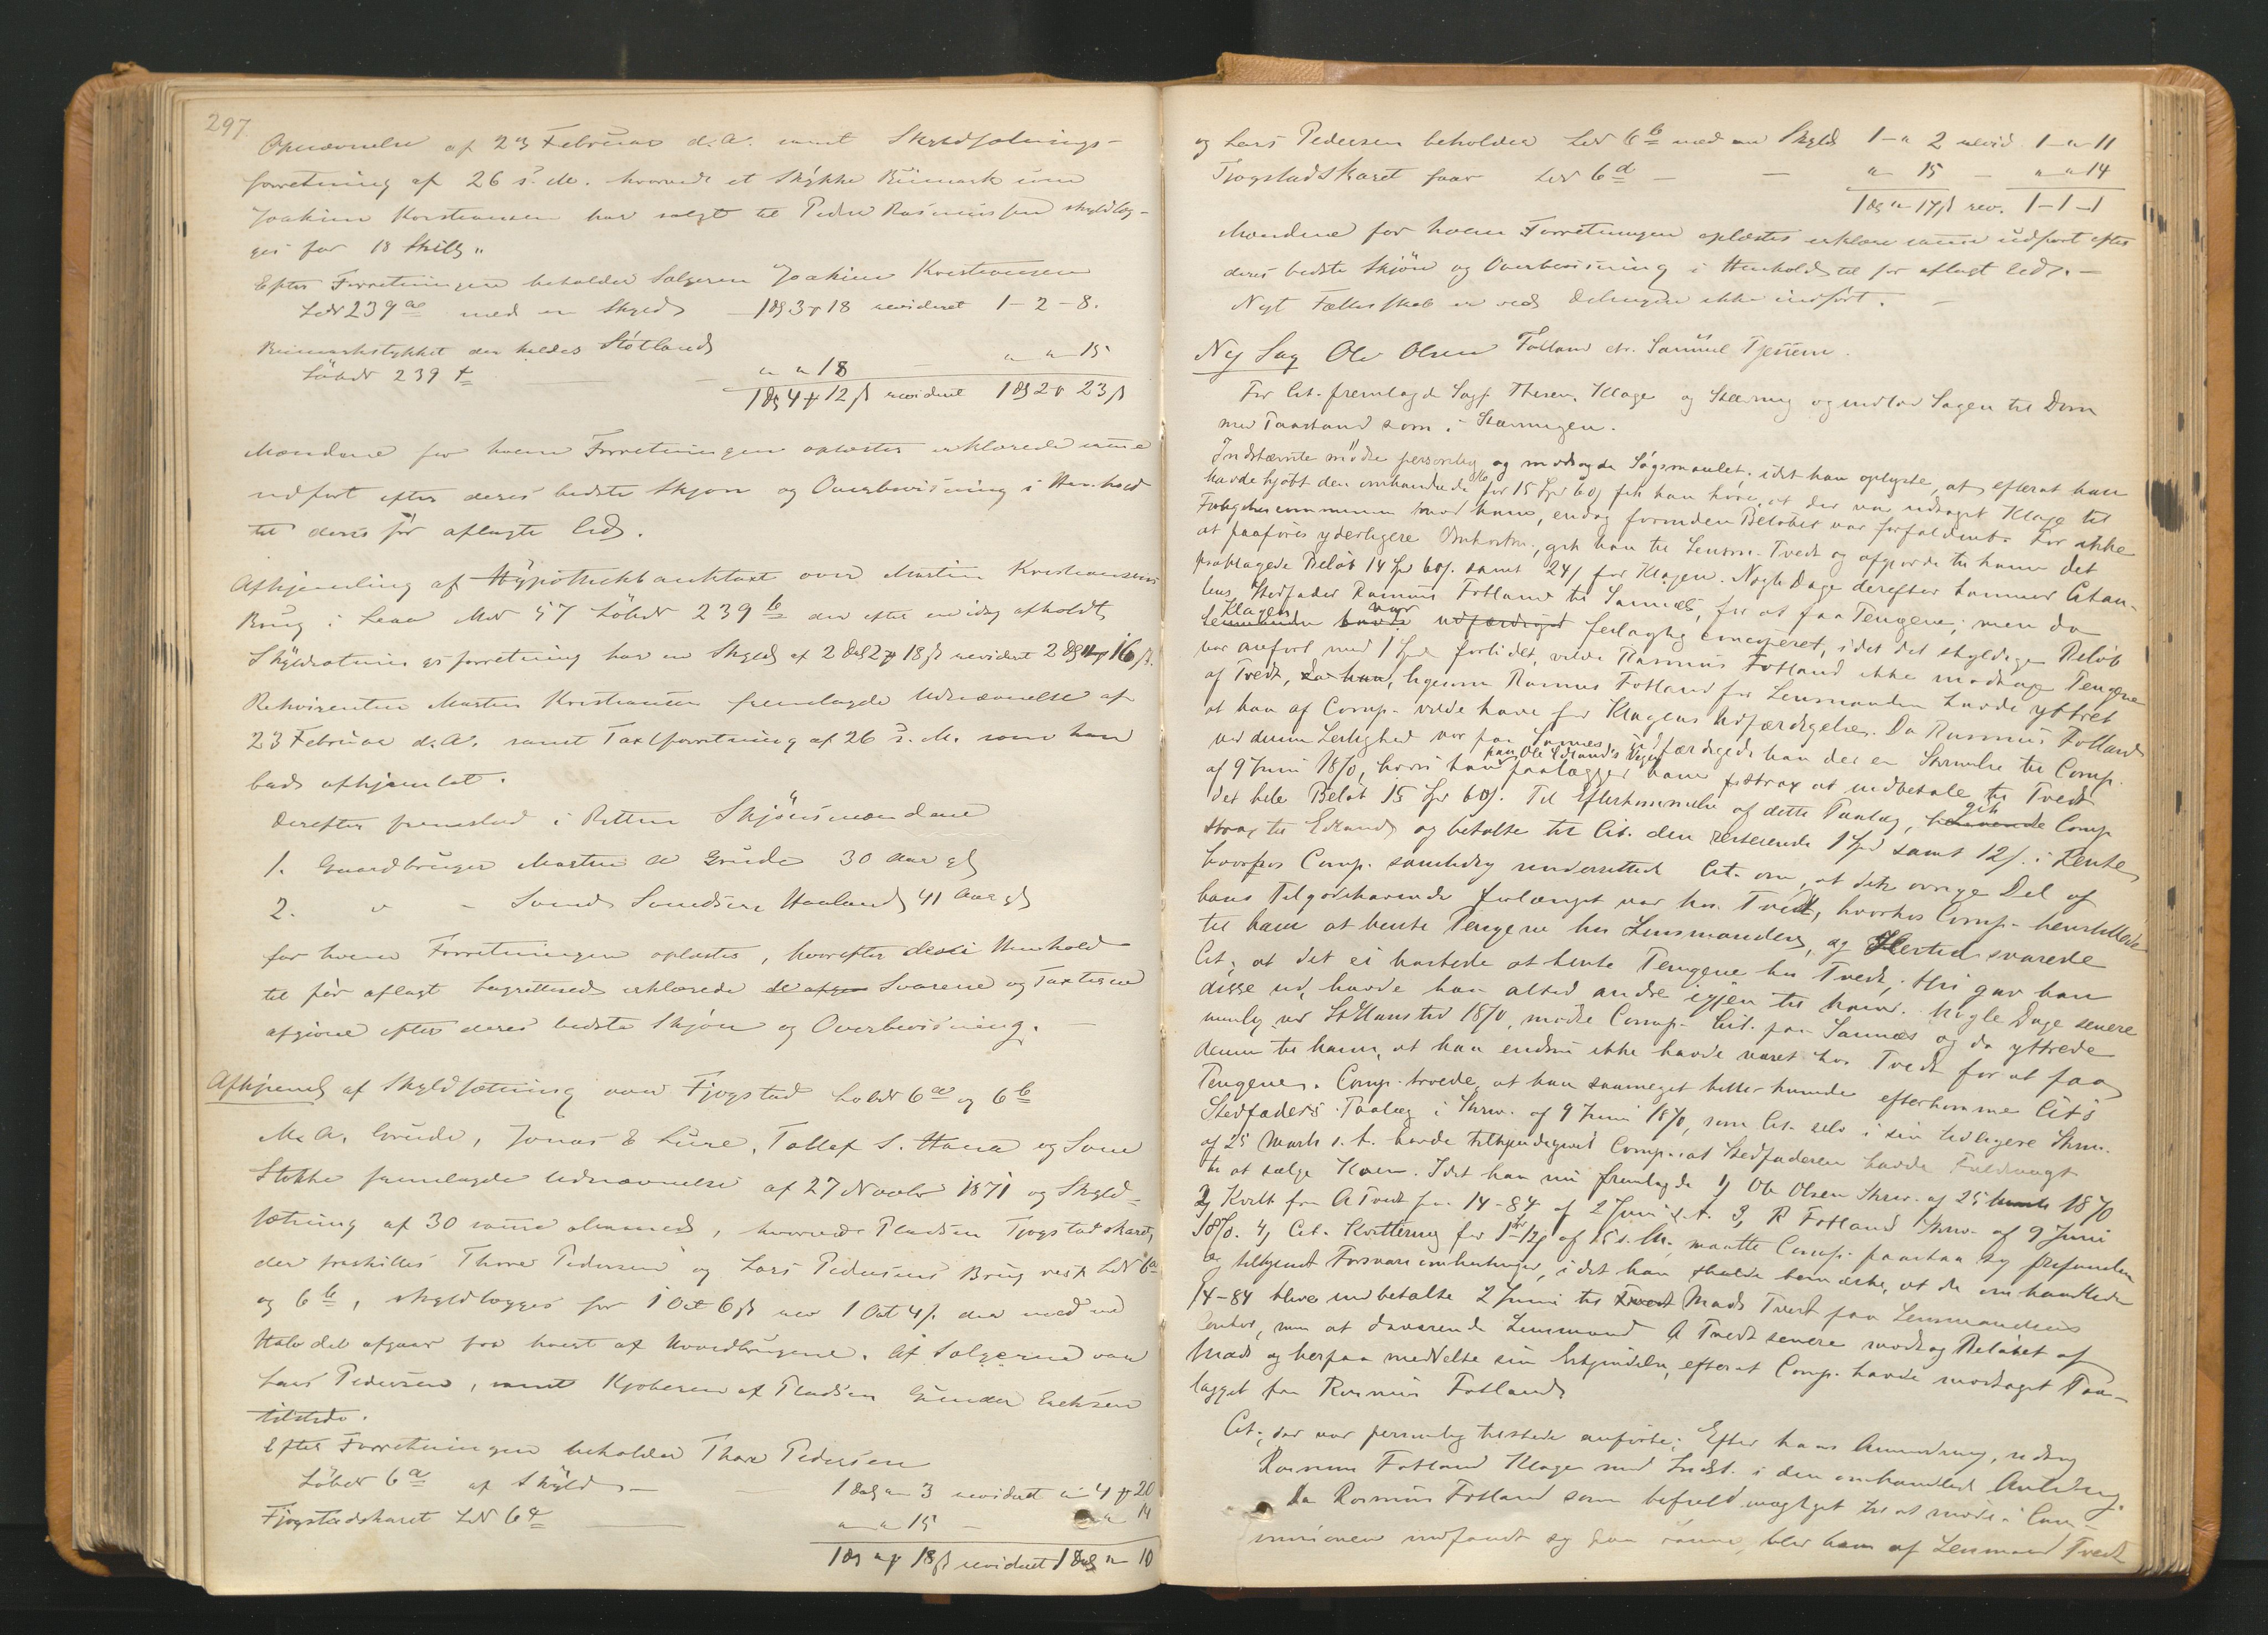 297
Opnævnelse af 23 Februar d.A. samt Skyldsætnings-
forretning af 26 s. M. hvorved et Stykke Bumark som
Joakim Kristiansen har solgt til Peder Rasmussen skyldlæg-
ges for 18 Skill„
Efter Forretningen beholder Sælgeren Joakim Kristiansen
LNr 239 a med en Skyld 1 3 18 revideret 1-2-8.
Bumarksstykket der kaldes Støtland
Löbnr 239 " " 18 - " " 15
1 4 12 ß revideret 1 2 23 ß
Mændene for hvem Forretningen oplæstes erklærede samme
udført efter deres bedste Skjøn og Overbevisning i Henhold
til deres før aflagte Ed.
Afhjemling af Hypothekbanktaxt over Martin Kristiansens
Brug i Leaa MNr 57 Löbnr 239 b der efter en idag afholdt
Skyldsætnings forretning har en Skyld af 2 Dal 2 18 ß revideret 2 16 ß.
Rekvirenten Martin Kristiansen fremlagde Udnævnelse af
23 Februar d.A. samt Taxtforretning af 26 s. M. som han
bad afhjemlet.
Derefter fremstod i Retten Skjönsmændene
1. Gaardbruger Martin A Grude 30 Aar gl
2. " - Svend Svendsen Haaland 41 Aar gl
for hvem Forretningen oplæstes, hvorefter de i Henhold
til før aflagt erklærede Svarene og Taxterne
afgivne efter deres bedste Skjøn og Overbevisning.
Afhjeml af Skyldsætning over Fjogstad Löbnr 6 a og 6 b
M. A. Grude, Jonas E Lure, Tollef S. Hana og
Stokke fremlagde Udnævnelse af 27 Novbr 1871 og Skyld-
sætning af 30 samme Maaned, hvorved Pladsen Fjogstadskaret,
der fraskilles Thore Pedersens og Lars Pedersens Brug resp LNr 6 a
og 6 b, skyldlægges for 1 Ort 6 ß rev 1 Ort 4 ß. der med en
Halvdel afgaar fra hvert af Hovedbrugene. Af Sælgerne var
Lars Pedersen, samt Kjøberen af Pladsen Gunder Eriksen
tilstede.
Efter Forretningen beholder Thore Pedersen
Löbnr 6 a af Skyld - 1 " 3 revideret " 4 20
Fjogstadskaret LNr 6 c " " 15 - " " 14
1 18 ß revideret 1 " 10
og Lars Pedersen beholder LNr 6 b med en Skyld 1 - " 2 revid. 1 - " 11
Fjogstadskaret faar LNr 6 d - - " 15 - " " 14
1 " 17 ß rev. 1-1-1
Mændene for hvem Forretningen oplæstes erklære samme udført efter
deres bedste Skjön og Overbevisning i Henhold til før aflagt Ed. -
Nyt Fællesskab er ved Delingen ikke indført. -
Ny Sag Ole Olsen Fotland ctr. Samuel
For Cit. fremlagde Sagf. Klage og Stævning og indlod Sagen til Dom
med Paastand som i Stævningen.
Indstævnte mödte personlig og modsagde Søgsmaalet; idet han oplyste, at efterat han
havde kjöbt den omhandlede for 15 Spd 60 ß fik han höre, at der var udtaget Klage til
Forligelsescommissionen mod ham, endog forinden Beløbet var forfaldent. For ikke
at paaføres yderligere Omkostn., gik han til Lensm. Tvedt og afgjorde til ham det
paaklagede Beløb 14 Spd 60 ß. samt 24 ß for Klagen. Nogle Dage derefter kommer Citan-
tens Stedfader Rasmus Fotland til Sannæs, for at faa Pengene; men da
Klagen var feilagtig conciperet, idet det skyldige Beløb
var anført med 1 Spd forlidet, vilde Rasmus Fotland ikke modtage Pengene
af Tvedt, ligesom Rasmus Fotland for Lensmanden havde yttret
at han af Comp. vilde have for Klagens Udfærdigelse. Da Rasmus Fotland
ved denne Leilighed var paa Sannæs, udfærdigede han der en Skrivelse til Comp.
af 9 Juni 1870, hvori han paa Ole Edlands Vegne paalægger ham strax at indbetale til Tvedt
det hele Beløb 15 Spd 60 ß. Til Efterkommelse af dette Paalæg, gik Comp
strax til Edland og betalte til Cit. den resterende 1 Spd samt 12 ß. i Rente,
hvorhos Comp. samtidig underrettede Cit. om, at det övrige Del af
hans Tilgodehavende forlængst var hos Tvedt, hvorhos Comp. henstillede
til ham at hente Pengene hos Lensmanden, og Hertil svarede
Cit., at det ei hastede at hente Pengene hos Tvedt, Hvis gav han
disse ud, havde han altid andre igjen til ham. Nogle Dage senere
nemlig ved St Hanstid 1870, mødte Comp. Cit. paa Sannæs og da yttrede
denne til ham, at han endnu ikke havde været hos Tvedt for at faa
Pengene. Comp. troede, at han saameget heller kunde efterkomme Cit's
Stedfaders Paalæg i Skriv. af 9 Juni 1870, som Cit. selv i sin tidligere Skriv.
af 25 Marts s. A. havde tilkjendegivet Comp. at Stedfaderen havde Fuldmagt
til at sælge Koen. Idet han nu fremlagde 1, Ole Olsen Skriv. af 25 Marts 1870
2, Kvitt fra A Tvedt for 14-84 af 2 Juni s. A. 3, R Fotland Skriv. af 9 Juni
1870. 4, Cit. Kvittering for 1-12 ß af 15 s. M., maatte Comp. paastaa sig frifunden
og tilkjendt Forsvarsomkostninger, idet han skulde bemærke, at de omhandlede
14-84 blev indbetalte 2 Juni til Mads Tvedt paa Lensmandens
Contor, men at daværende Lensmand A Tvedt senere modtog Beløbet af
Mads og herpaa meddelte sin Erkjendelse, efterat Comp. havde modtaget Paa-
lægget fra Rasmus Fotland
Cit., der var personlig tilstede anførte: Efter hans Anmodning, udtog
Rasmus Fotland Klage mod Indst. i den omhandlede Anledning.
Da Rasmus Fotland som befuldmægtiget til at møde i Com-
missionen indfandt sig paa samme, blev ham af Lensmand Tvedt